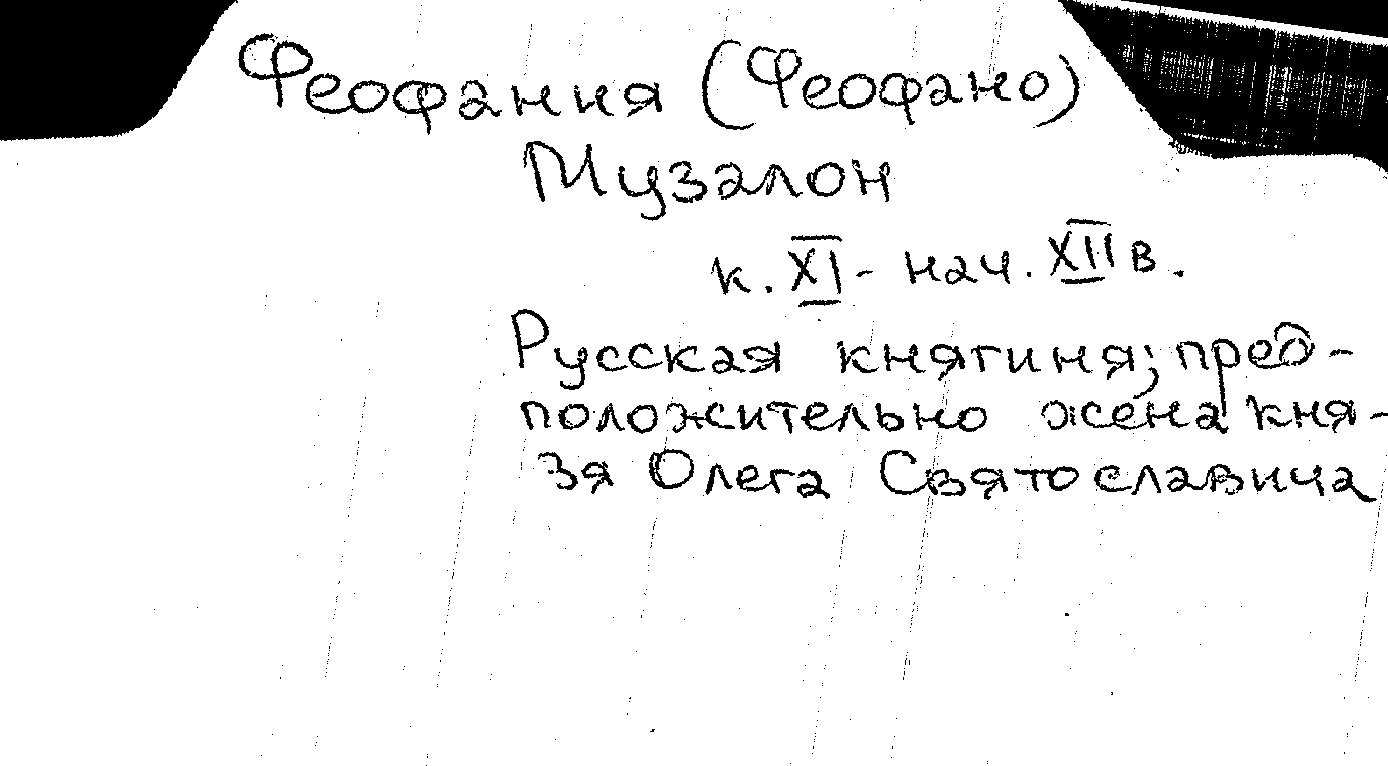 Феофания (Феофано)
Музалон
к. XI - нач. XII в.
Русская княгиня; пред-
положительно жена кня-
зя Олега Святославича